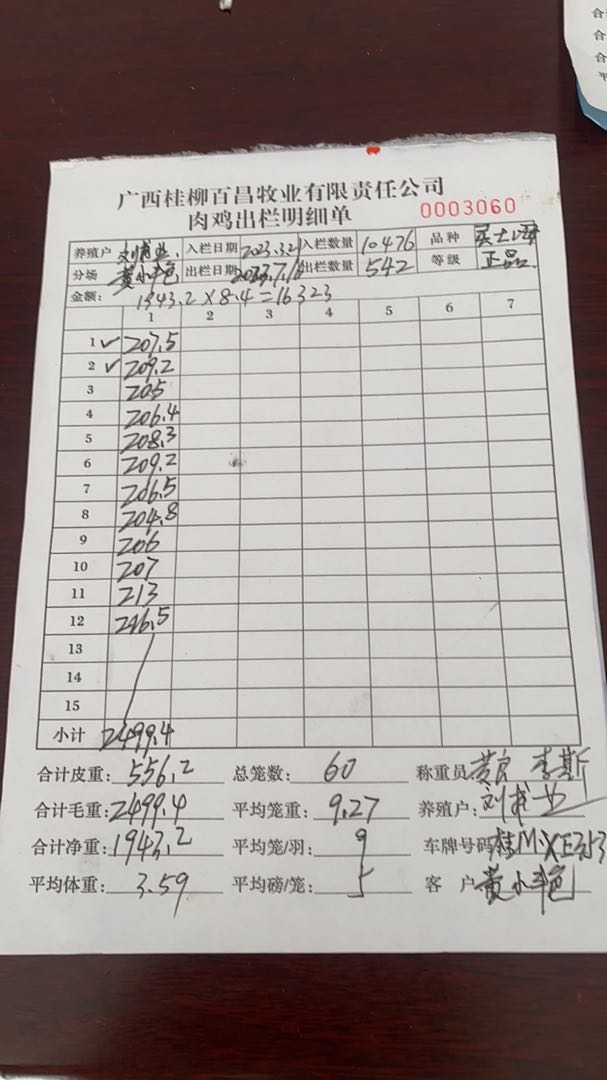 合计
合
合
平
广西桂柳百昌牧业有限责任公司
肉鸡出栏明细单 0003060
养殖户 入栏日期 2023.3.21 入栏数量 10476 品种
分场 黄小艳 出栏日期 2023.7.16 出栏数量 542 等级 正品
金额: 1943.2×8.4=16323
1 2 3 4 5 6 7
1 ✓ 207.5
2 ✓ 209.2
3 205
4 206.4
5 208.3
6 209.2
7 206.5
8 204.8
9 206
10 207
11 213
12 216.5
13
14
15
小计 2499.4
合计皮重: 556.2 总笼数: 60 称重员
合计毛重: 2499.4 平均笼重: 9.27 养殖户:
合计净重: 1943.2 平均笼/羽: 9 车牌号码
平均体重: 3.59 平均磅/笼: 5 客户